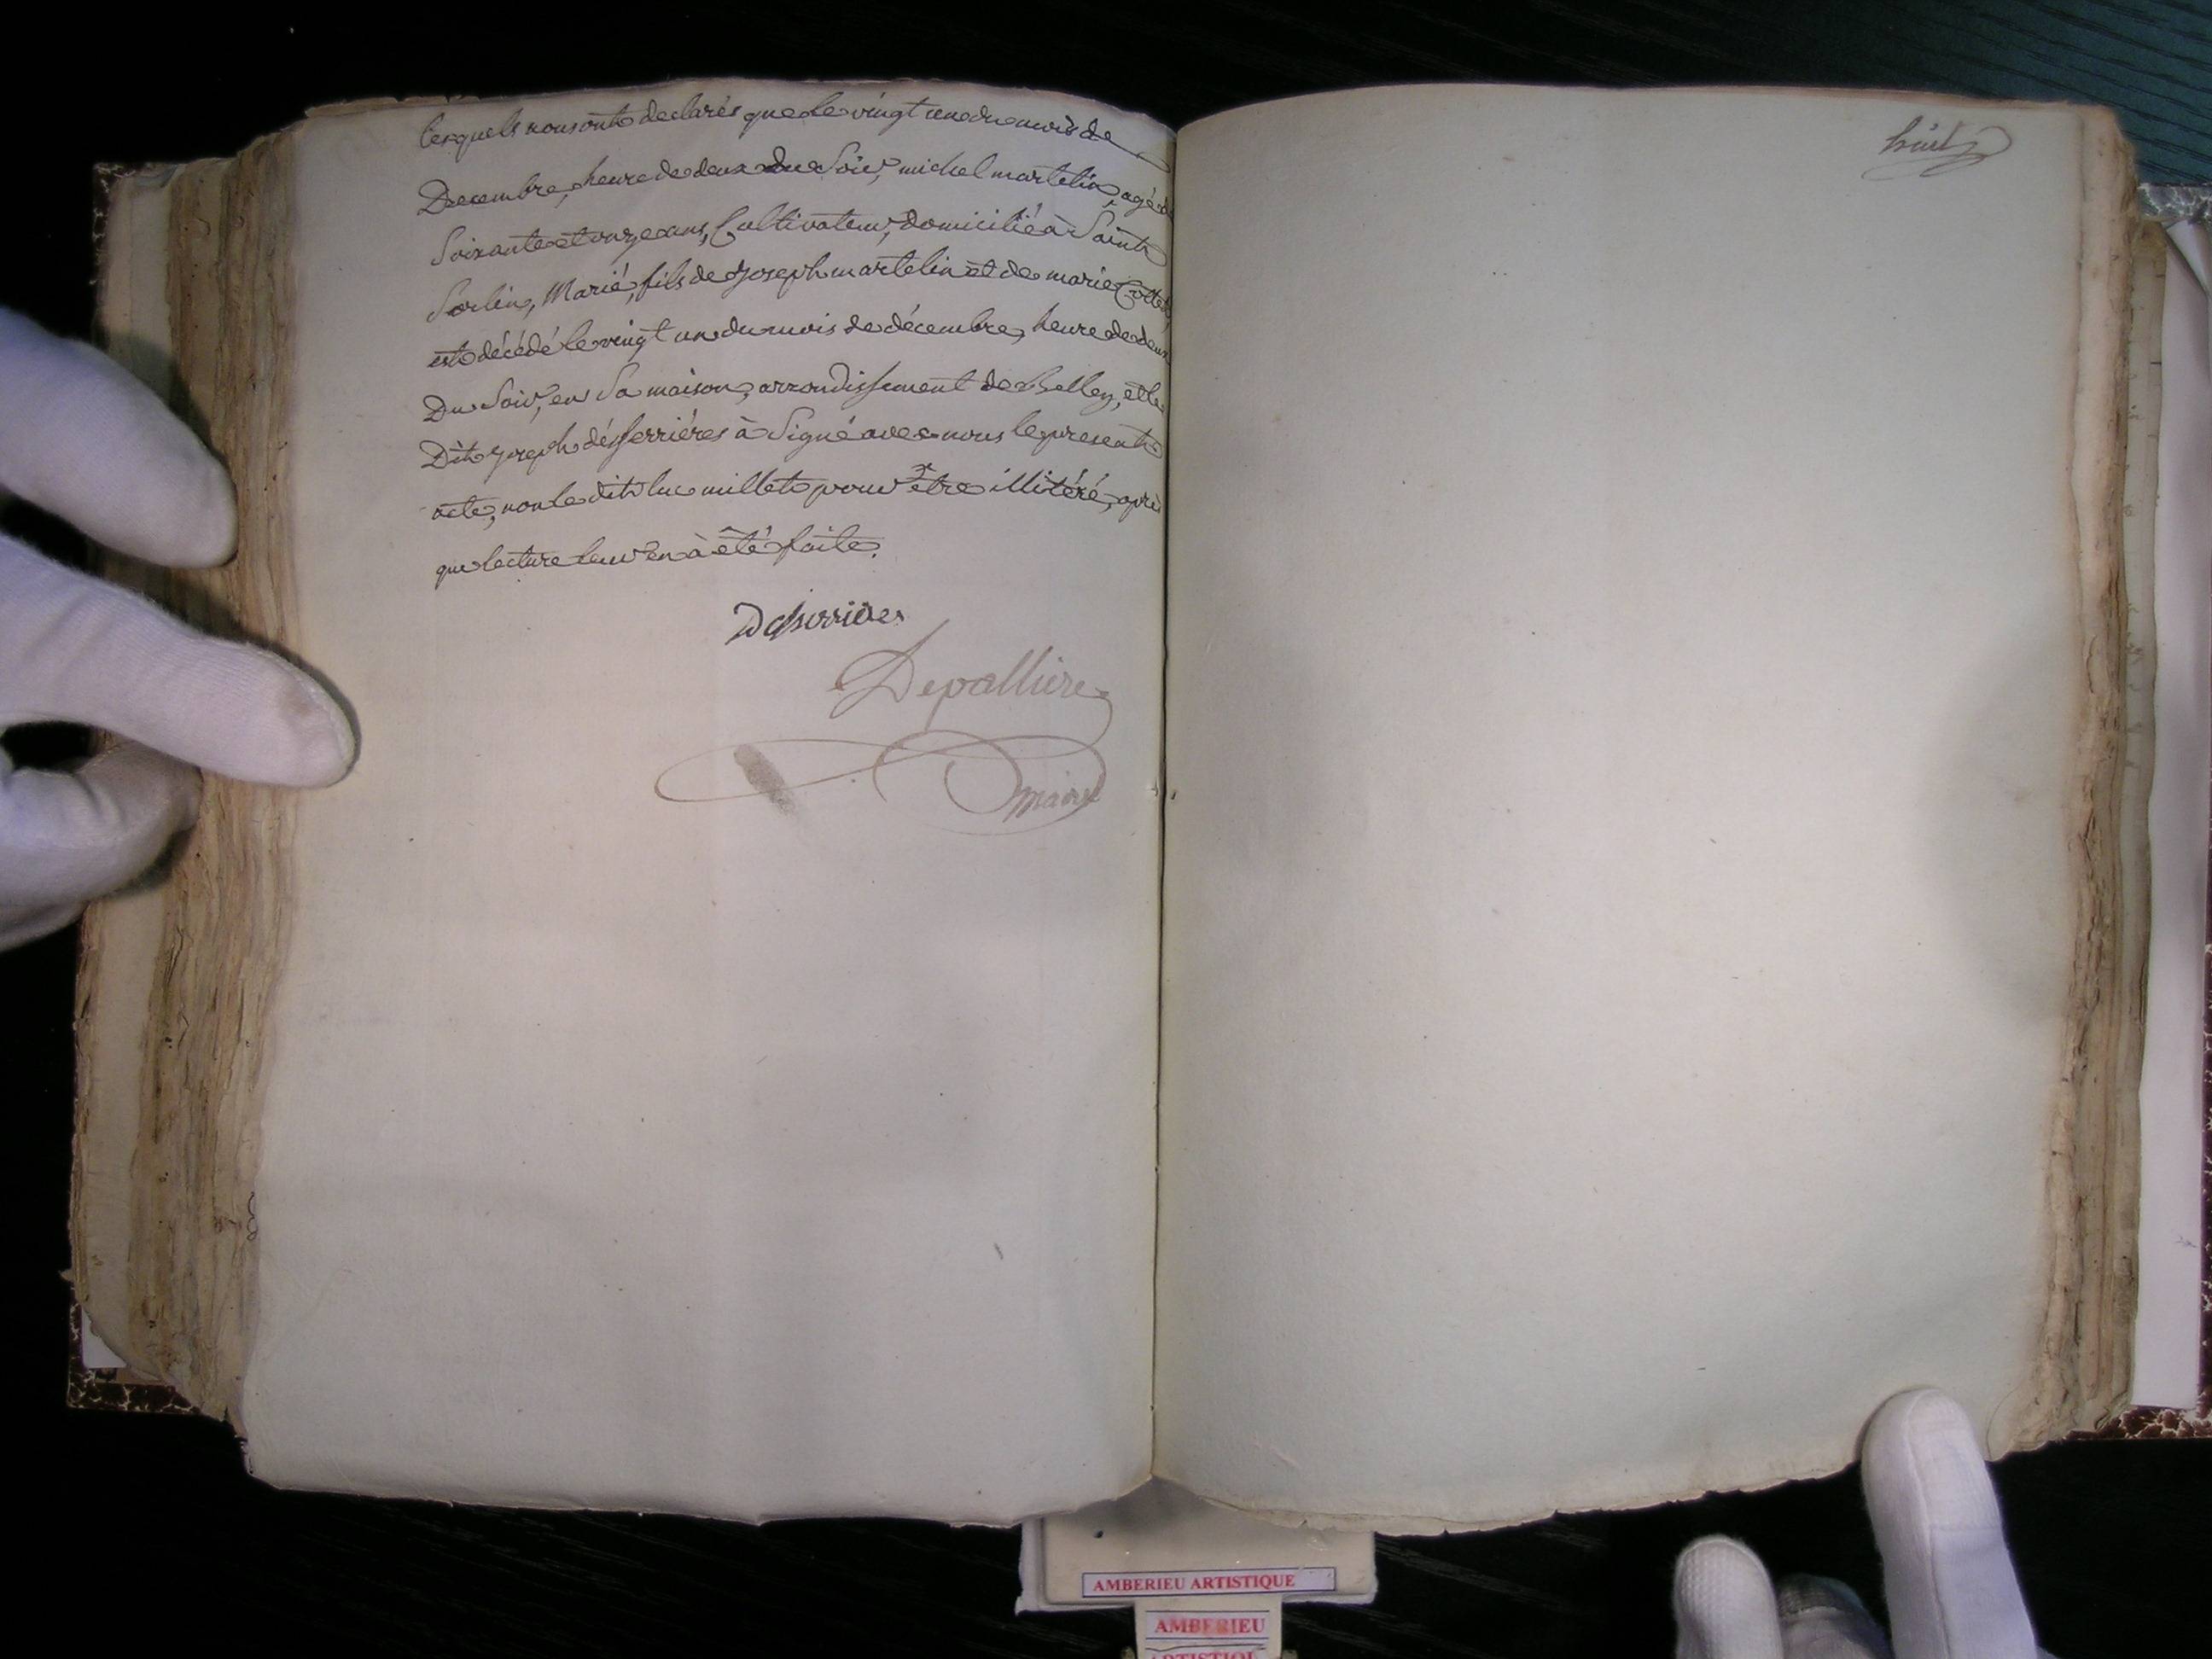 lesquels nous ont declarés que le vingt un du mois de
Decembre, heure de deux du Soir, michel martelin, agé de
Soixante et onze ans, Cultivateur, domicilié à Saint
Sorlin, Marié, fils de Joseph martelin et de marie Cottet,
est décédé le vingt un du mois de décembre, heure de deux
Du Soir, en Sa maison, arrondissement de Belley, et le
Dit Joseph désferriéres à Signé avec nous le present
acte, non le dit luc millet pour être illitéré, après
que lecture leur en à été faite.
Desferrieres
Depalliere
maire
huit
AMBERIEU ARTISTIQUE
AMBERIEU
ARTISTIQUE